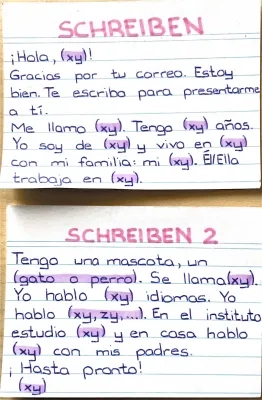 SCHREIBEN
¡Hola, (xy)!
Gracias por tu correo. Estoy
bien. Te escribo para presentarme
a tí.
Me llamo (xy). Tengo (xy) años.
Yo soy de (xy) y vivo en (xy)
con mi familia: mi (xy). Él/Ella
trabaja en (xy).
SCHREIBEN 2
Tengo una mascota, un
(gato o perro). Se llama(xy).
Yo hablo (xy) idiomas. Yo
hablo (xy, zy,...). En el instituto
estudio (xy) y en casa hablo
(xy) con mis padres.
¡Hasta pronto!
(xy)